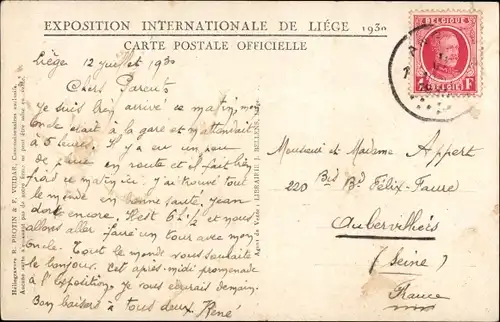 EXPOSITION INTERNATIONALE DE LIÉGE 1930
CARTE POSTALE OFFICIELLE
Liège 12 juillet 1930
Chers Parents
Je suis bien arrivé ce matin, mon
oncle était à la gare et m'attendait
à 5 heures. Il y a eu un peu
de pluie en route et il fait bien
frais ce matin ici. J'ai trouvé tout
le monde en bonne santé. Jean
dort encore. Il est 6h ½ et nous
allons aller faire un tour avec mon
oncle. Tout le monde vous souhaite
le bonjour. Cet après-midi promenade
à l'exposition je vous écrirai demain.
Bon baisers à tous deux. René
Héliogravure R. PROTIN & F. VUIDAR, Concessionnaires exclusifs.
Aucune carte n'émanant pas de notre firme, ne peut être mise en vente.
Agent de Vente : LIBRAIRIE J. MELLENS,
BELGIQUE
1F
BELGIË
Monsieur et Madame Appert
220 Bis Bd Félix-Faure
Aubervilliers
(Seine)
France